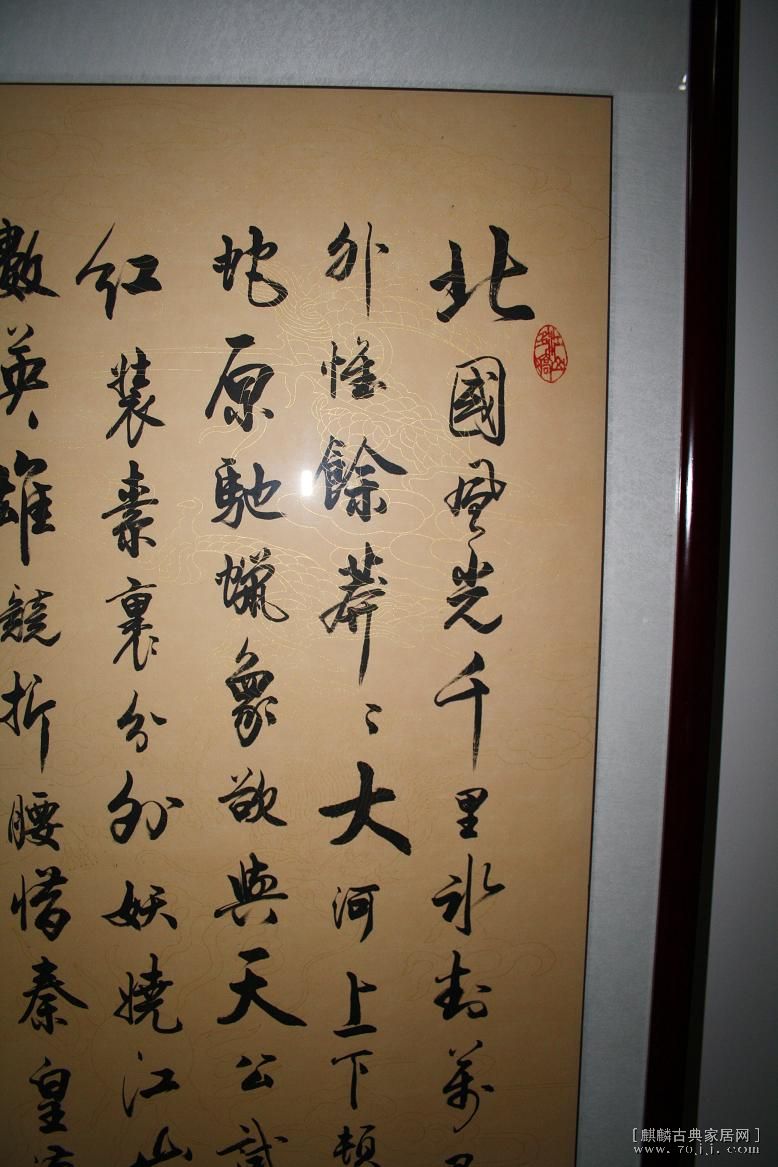 北國風光千里冰封萬里
外惟餘莽〻大河上下頓
蛇原馳蠟象欲與天公試
紅裝素裹分外妖嬈江山
數英雄競折腰惜秦皇
[麒麟古典家居网]
www.70jj.com